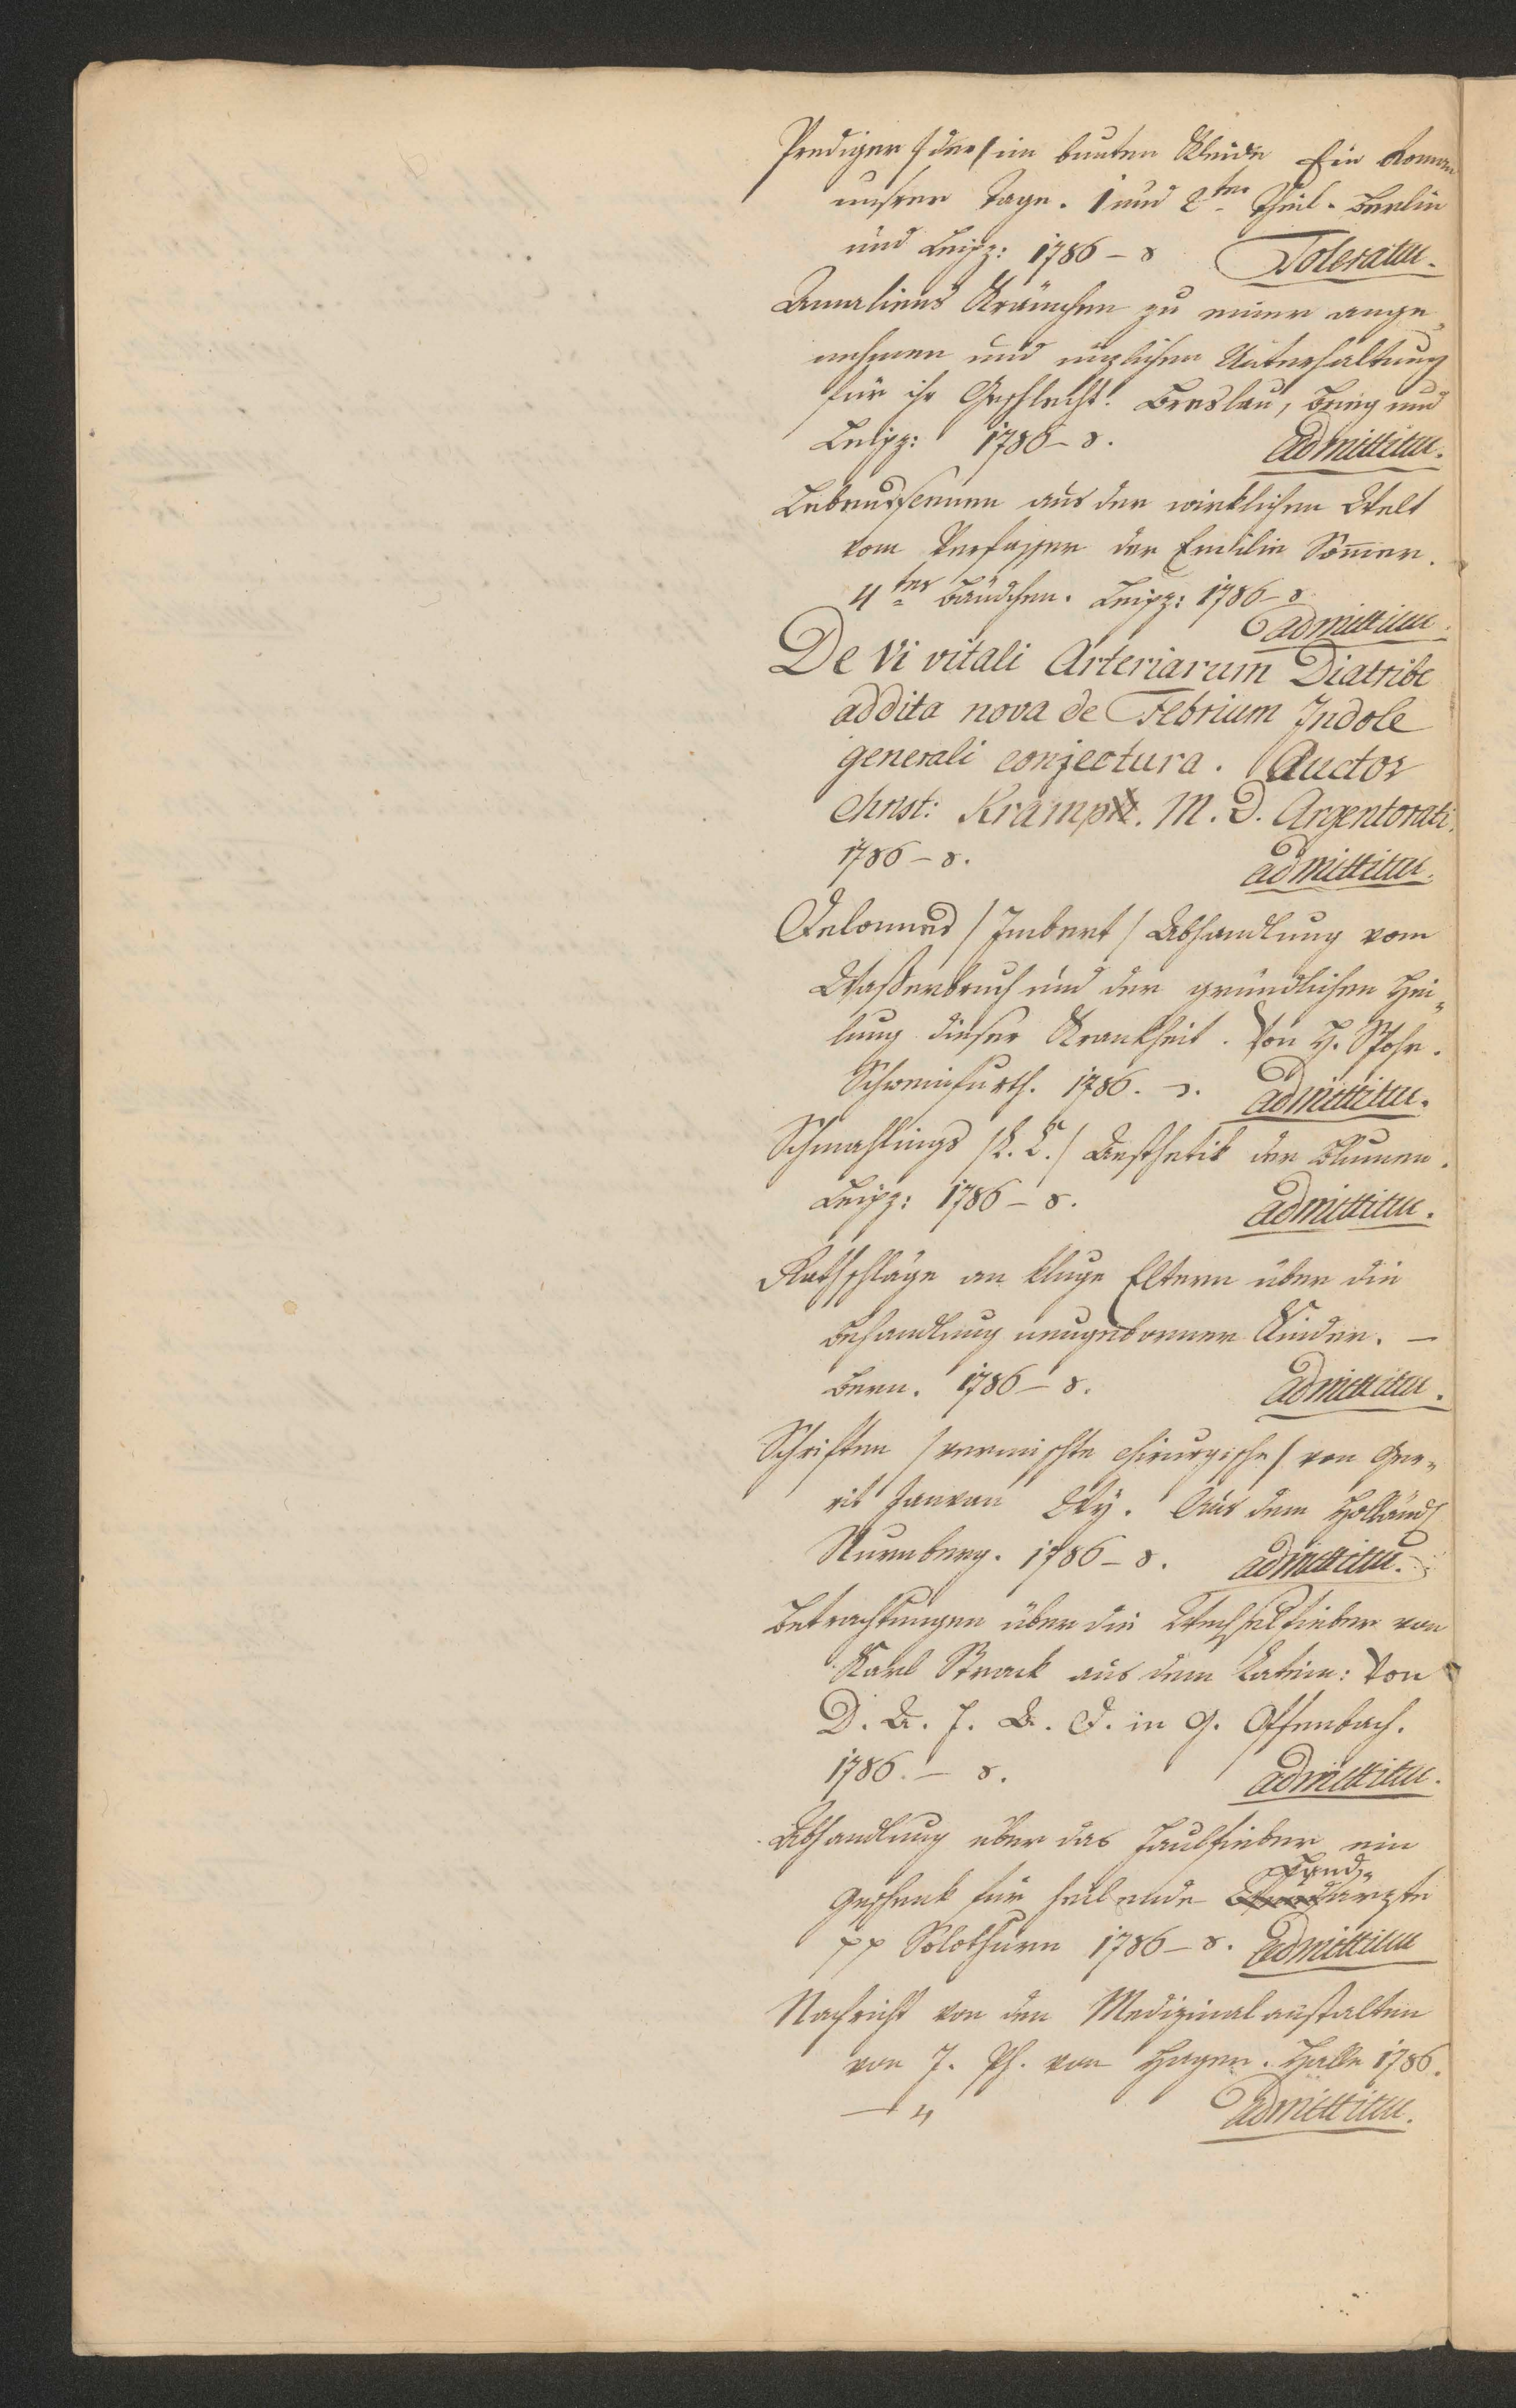 Prediger /der/ im bunten Kleide Ein Roman
unsrer Tage. 1 und 2ter Theil. Berlin
und Leipz: 1786 – 8 Toleratur.
Amaliens Kränzchen zu einer ange„
nehmen und nüzlichen Unterhaltung
für ihr Geschlecht. Breslau, Brieg und
Leipz: 1786 – 8. admittitur.
Lebensscenen aus der wirklichen Welt
vom Verfasser der Emilie Sommer.
4tes Bändchen. Leipz: 1786 – 8
admittitur.
De Vi vitali Arteriarum Diatribe
addita nova de Febrium Indole
generali conjectura. Auctor
Christ: Kramp. M. D. Argentorati.
1786 – 8. admittitur.
Delonnes /Imbert/ Abhandlung vom
Waßerbruch und der gründlichen Hei„
lung dieser Krankheit. Von H. Spohr.
Schweinfurth. 1786. 8. admittitur.
Schmahlings /L. C./ Aesthetik der Blumen.
Leipz: 1786 – 8. admittitur.
Rathschläge an kluge Eltern über die
Behandlung neugeborner Kinder. –
Bern. 1786 – 8. admittitur.
Schriften /vermischte chirurgische/ von Ger„
rit Janvan Wy. Aus dem Holländ
Nurnberg. 1786 – 8. admittitur.
Betrachtungen über die Wechselfieber von
Karl Strack aus dem Latein: Von
D. A. F. A. D. in G. Offenbach.
1786. – 8. admittitur.
Abhandlung über das Faulfieber ein
Geschenk für heilende Landärzte
pp Solothurn 1786 – 8. admittitur
Nachricht von den Medizinalanstalten
von J. Ph. von Hagen. Halle 1786.
– 4 admittitur.